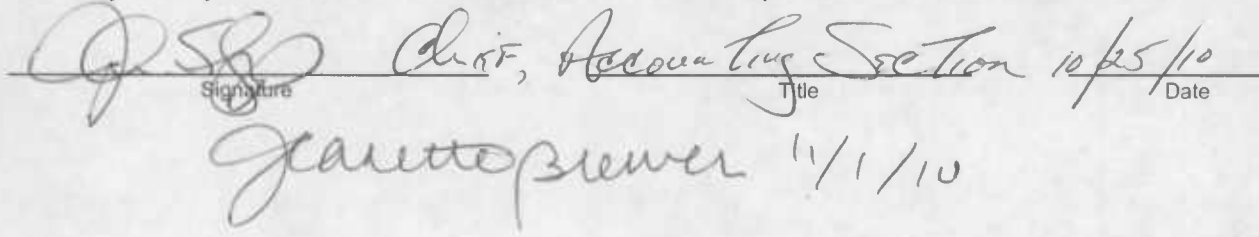 Chief, Accounting Section 10/25/10
Signature Title Date
Jeanette Brewer 11/1/10